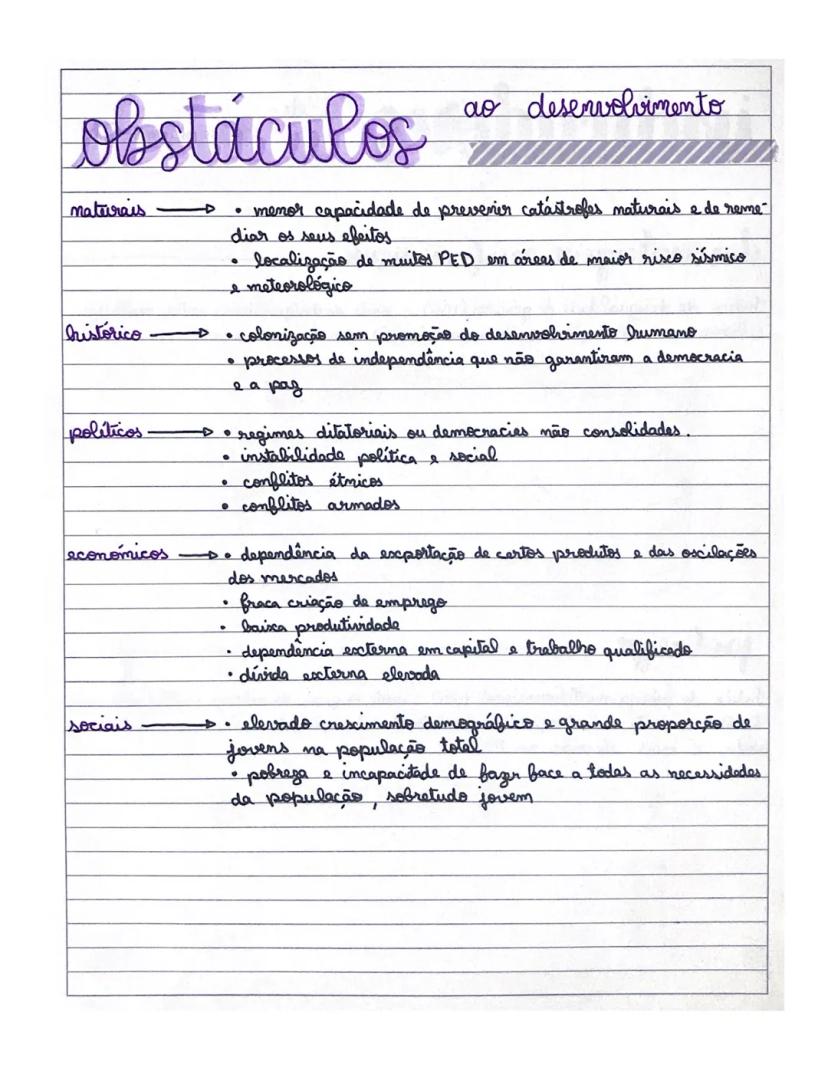 obstáculos ao desenvolvimento
naturais → • menor capacidade de prevenir catástrofes naturais e de reme-
diar os seus efeitos
• localização de muitos PED em áreas de maior risco sísmico
e meteorológico
histórico → • colonização sem promoção do desenvolvimento humano
• processos de independência que não garantiram a democracia
e a paz
políticos → • regimes ditatoriais ou democracias não consolidadas.
• instabilidade política e social
• conflitos étnicos
• conflitos armados
económicos → • dependência da exportação de certos produtos e das oscilações
dos mercados
• fraca criação de emprego
• baixa produtividade
• dependência externa em capital e trabalho qualificado
• dívida externa elevada
sociais → • elevado crescimento demográfico e grande proporção de
jovens na população total
• pobreza e incapacitade de fazer face a todas as necessidades
da população, sobretudo jovem